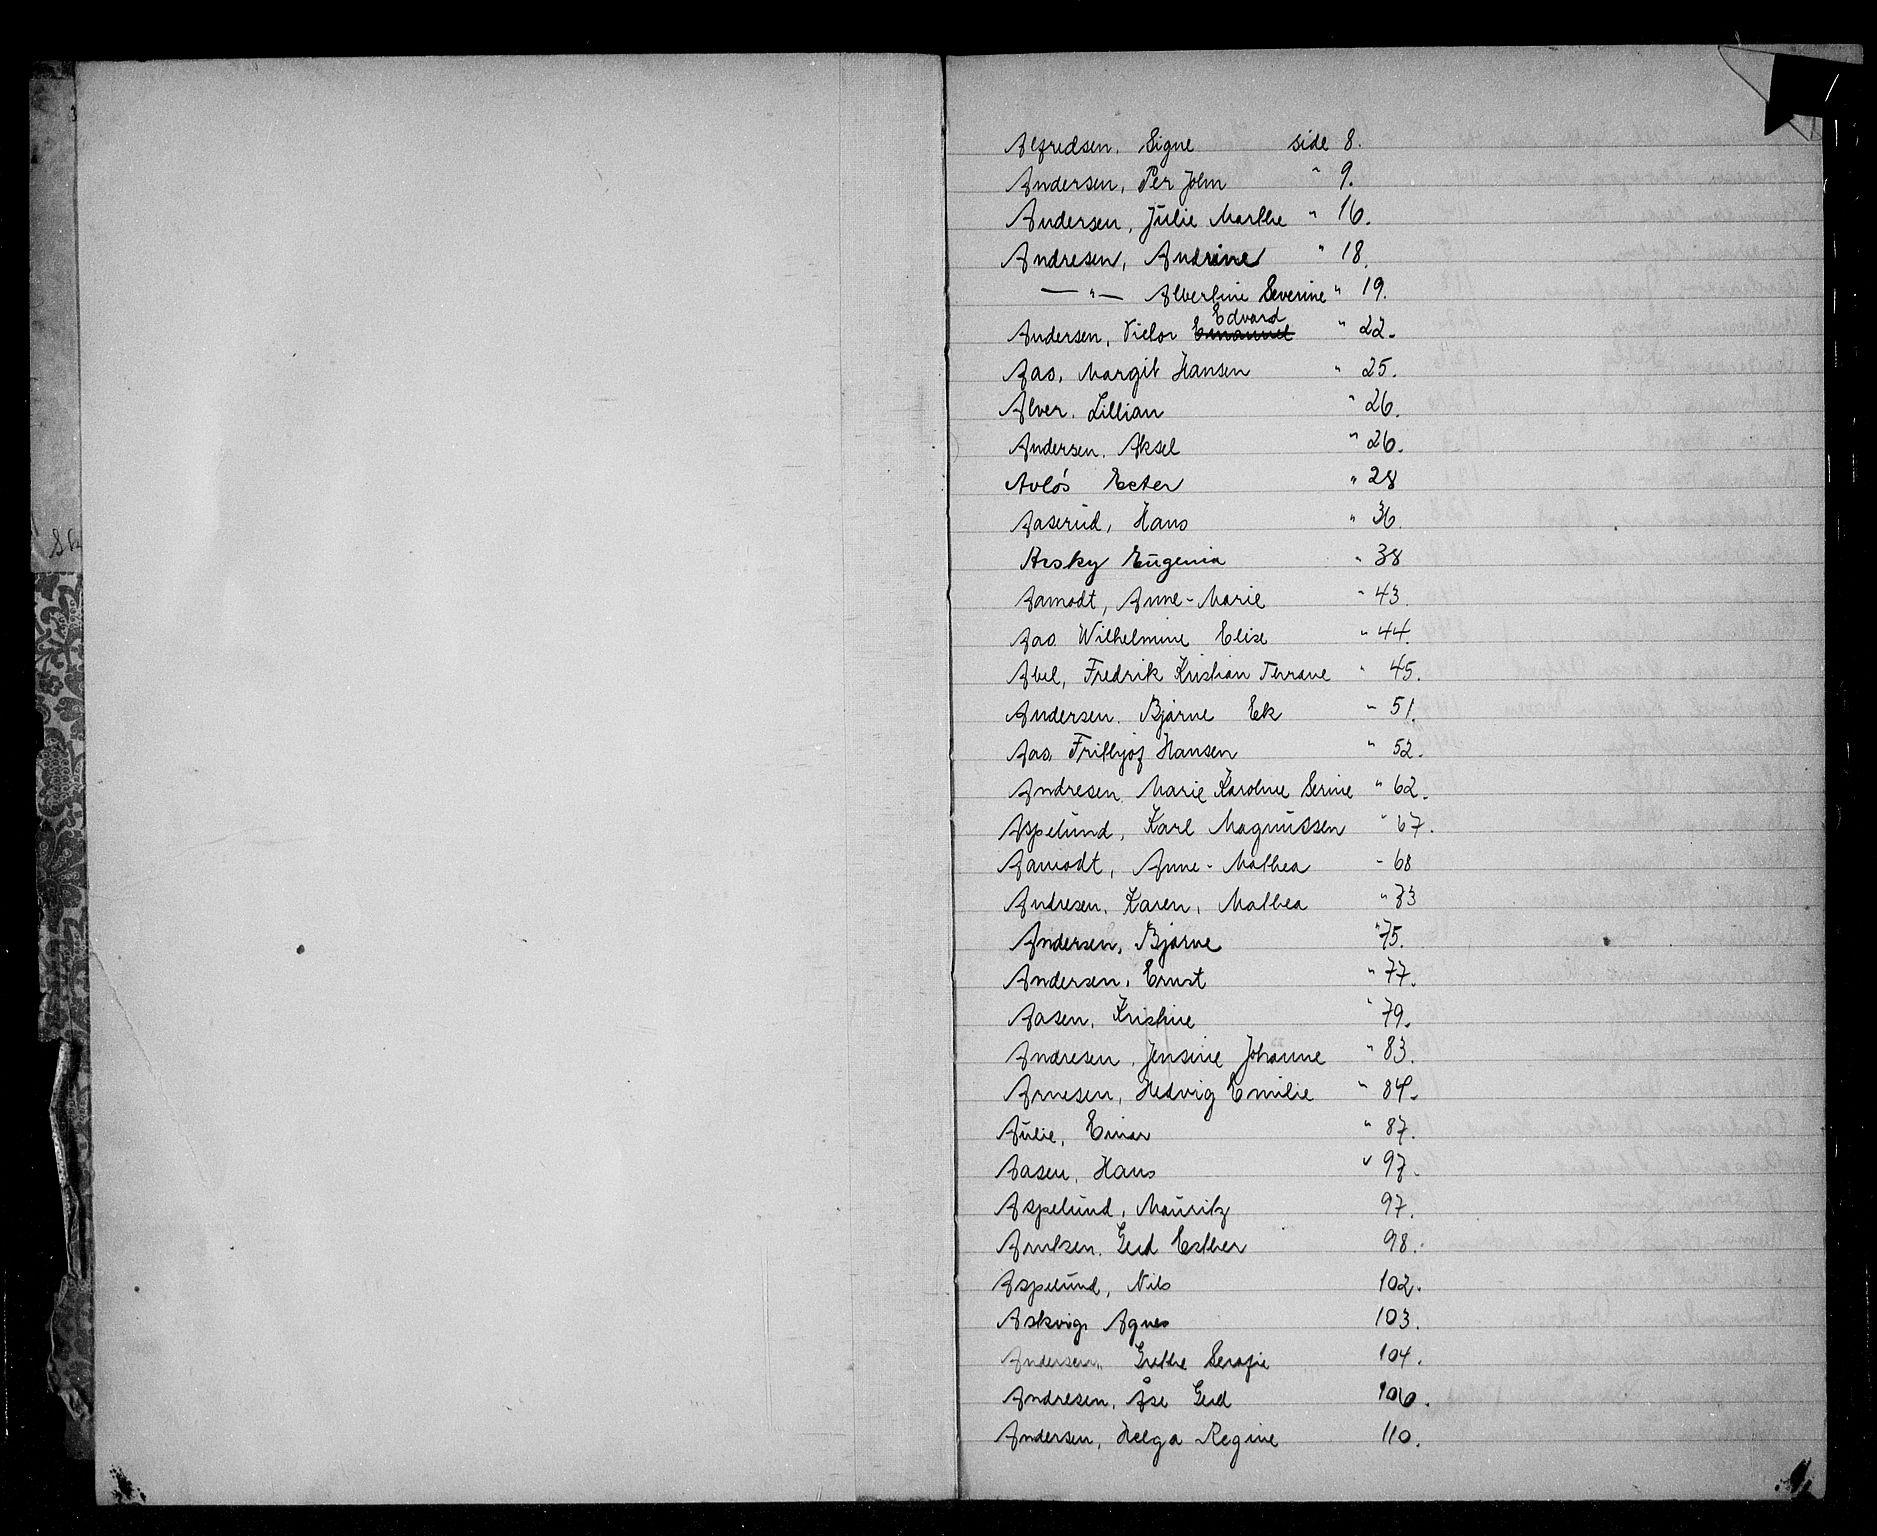 Alfredsen, Signe side 8.
Andersen, Per John " 9.
Andersen, Julie Marthe " 16.
Andresen, Andrine " 18.
— " — Albertine Severine " 19.
Edvard
Andersen, Victor Emanuel " 22.
Aas, Margit Hansen " 25.
Alver, Lillian " 26.
Andersen, Aksel " 26.
Avløs Ester " 28
Aaserud, Hans " 36.
Arsky Eugenia " 38
Aamodt, Anne-Marie " 43.
Aas Wilhelmine Elise " 44.
Abel, Fredrik Kristian Terrave " 45.
Andersen. Bjarne Ek " 51.
Aas, Frithjof Hansen " 52.
Andresen, Marie Karoline Serine " 62.
Aspelund, Karl Magnussen " 67.
Aamodt, Anne-Mathea " 68
Andresen, Karen, Mathea " 73
Andersen, Bjarne " 75.
Andersen, Ernst " 77.
Aasen, Kristine " 79.
Andresen, Jensine Johanne " 83.
Arnesen, Hedvig Emilie " 84.
Aulie, Einar " 87.
Aasen, Hans " 97.
Aspelund, Mauritz 97.
Arntsen, Gerd Esther 98.
Aspelund, Nils 102.
Askvig, Agnes 103.
Andersen, Grethe Serafie 104.
Andresen, Åse Gerd 106.
Andersen, Helga Regine 110.